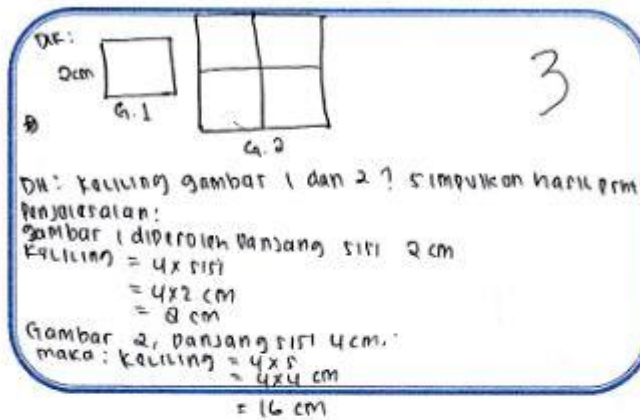 DIK:
2cm
G.1
G.2
3
DH: Keliling gambar 1 dan 2? simpulkan hasil
Penjelesaian:
Gambar 1 diperoleh Panjang sisi 2 cm
Keliling = 4 x sisi
= 4x2 cm
= 8 cm
Gambar 2, Panjang sisi 4cm.
maka: Keliling = 4 x s
= 4x4 cm
= 16 cm